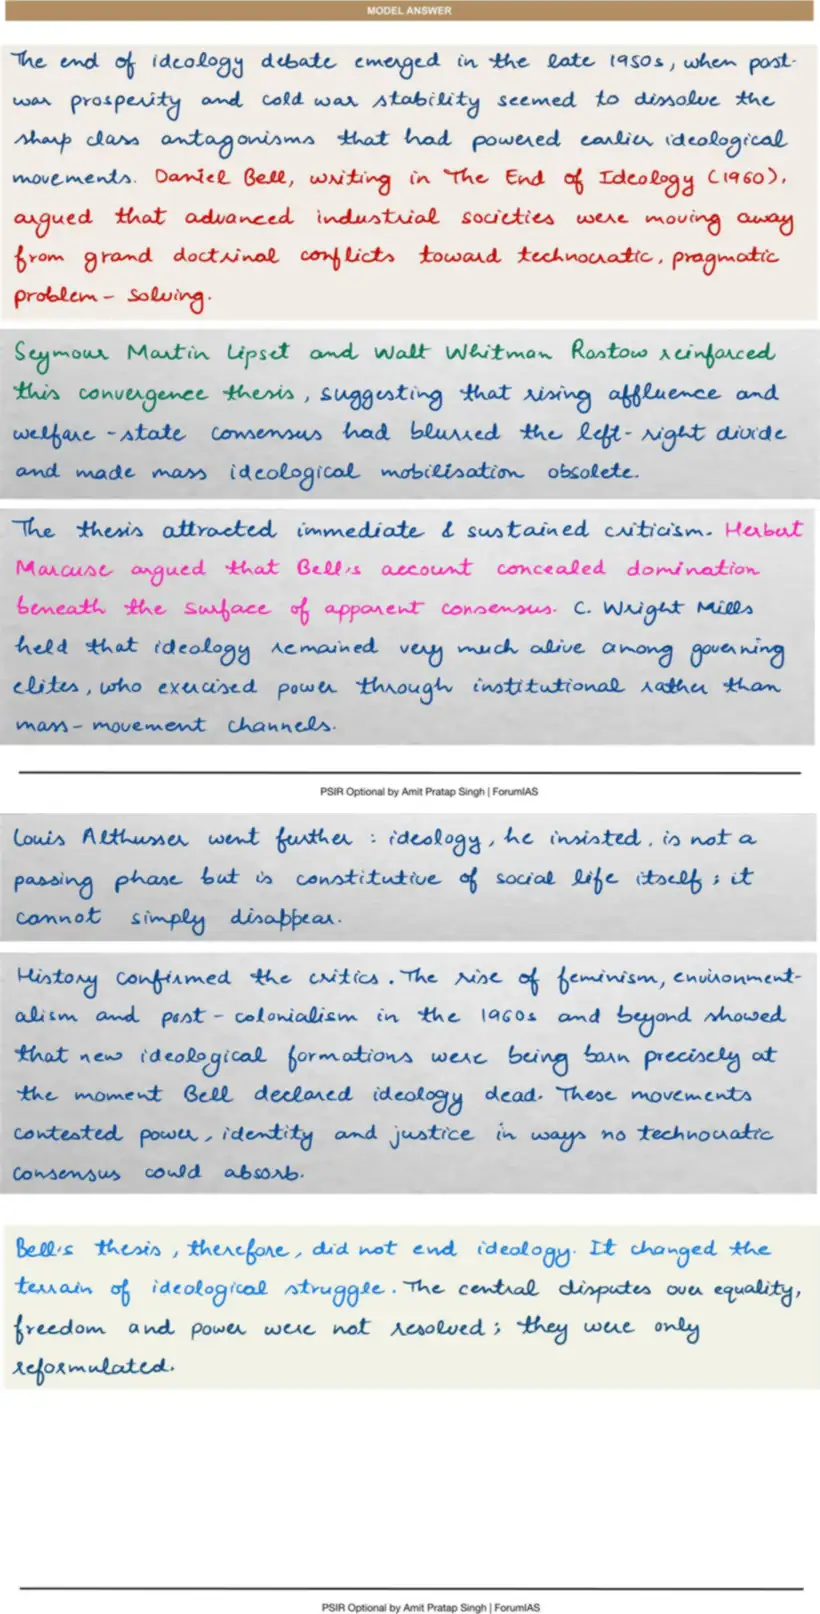 MODEL ANSWER
The end of ideology debate emerged in the late 1950s, when post-
war prosperity and cold war stability seemed to dissolve the
sharp class antagonisms that had powered earlier ideological
movements. Daniel Bell, writing in The End of Ideology (1960),
argued that advanced industrial societies were moving away
from grand doctrinal conflicts toward technocratic, pragmatic
problem-solving.
Seymour Martin Lipset and Walt Whitman Rostow reinforced
this convergence thesis, suggesting that rising affluence and
welfare-state consensus had blurred the left-right divide
and made mass ideological mobilisation obsolete.
The thesis attracted immediate & sustained criticism. Herbert
Marcuse argued that Bell's account concealed domination
beneath the surface of apparent consensus. C. Wright Mills
held that ideology remained very much alive among governing
elites, who exercised power through institutional rather than
mass-movement channels.
PSIR Optional by Amit Pratap Singh | ForumIAS
Louis Althusser went further : ideology, he insisted, is not a
passing phase but is constitutive of social life itself; it
cannot simply disappear.
History confirmed the critics. The rise of feminism, environment-
alism and post-colonialism in the 1960s and beyond showed
that new ideological formations were being born precisely at
the moment Bell declared ideology dead. These movements
contested power, identity and justice in ways no technocratic
consensus could absorb.
Bell's thesis, therefore, did not end ideology. It changed the
terrain of ideological struggle. The central disputes over equality,
freedom and power were not resolved; they were only
reformulated.
PSIR Optional by Amit Pratap Singh | ForumIAS